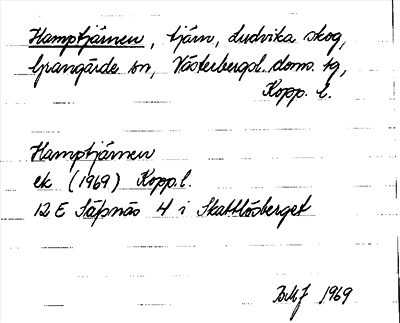 Hamptjärnen, tjärn, Ludvika skog,
Grangärde sn, Västerbergsl. doms. tg,
Kopp. l.
Hamptjärnen
ek (1969) Kopp. l.
12 E Säfsnäs 4 i Skattlösberget
BMJ 1969